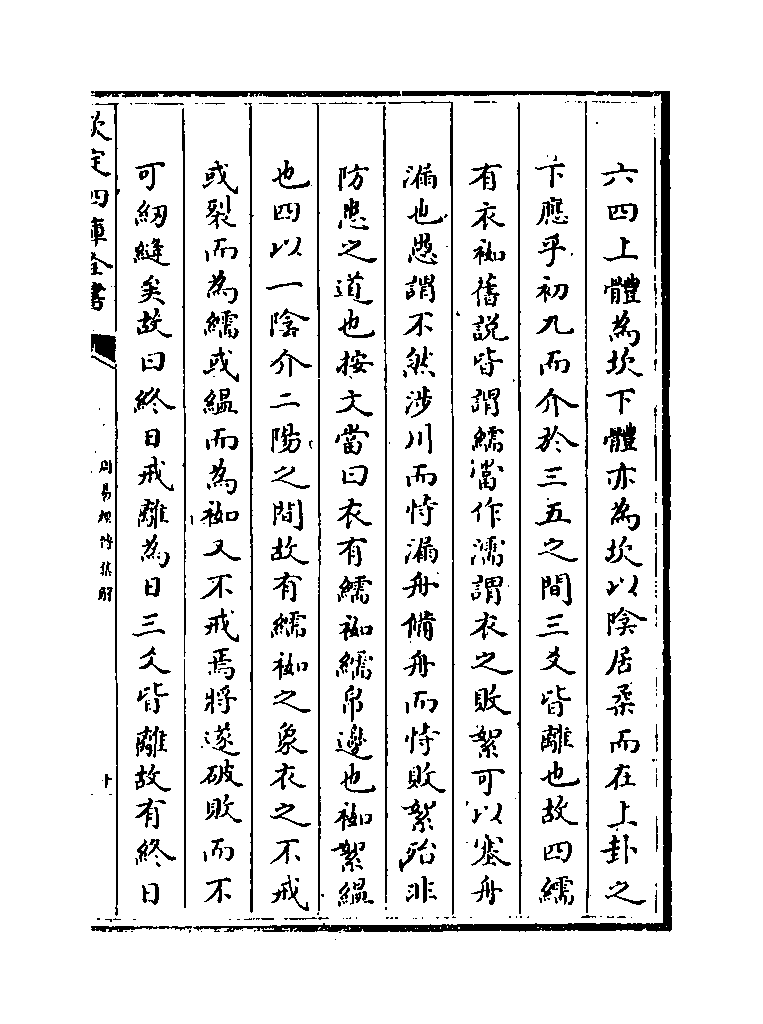 六四上體為坎下體亦為坎以陰居柔而在上卦之
下應乎初九而介於三五之間三爻皆離也故四繻
有衣袽舊説皆謂繻當作濡謂衣之敗絮可以塞舟
漏也愚謂不然涉川而恃漏舟備舟而恃敗絮殆非
防患之道也按文當曰衣有繻袽繻帛邊也袽絮緼
也四以一陰介二陽之間故有繻袽之象衣之不戒
或裂而為繻或緼而為袽又不戒焉將遂破敗而不
可紉縫矣故曰終日戒離為日三爻皆離故有終日
欽定四庫全書
周易經傳集解
十